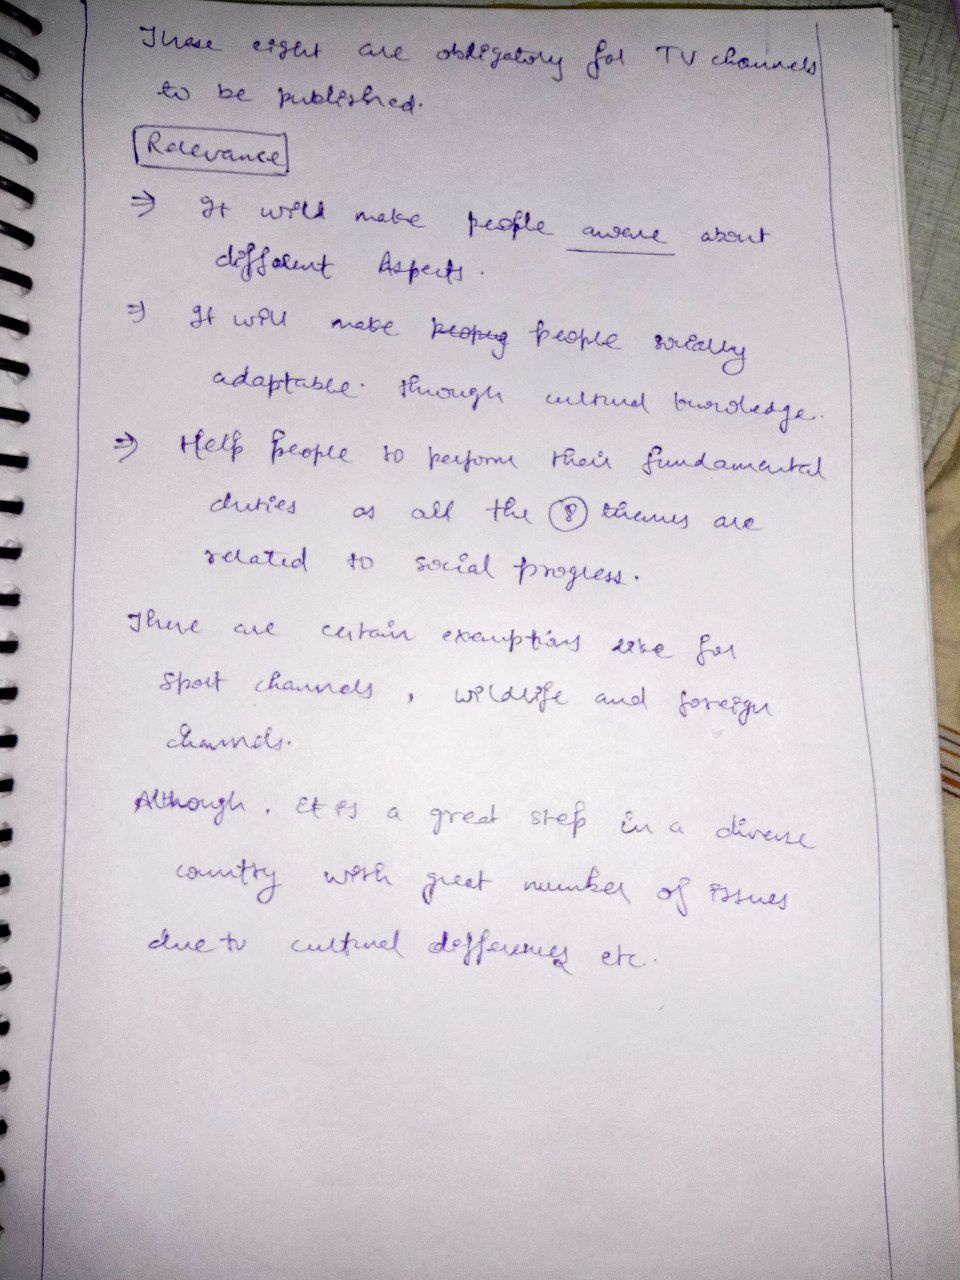 These eight are obligatory for TV channels
to be published.
Relevance
⇒ It will make people aware about
different Aspects.
⇒ It will make people socially
adaptable. through cultural knowledge.
⇒ Help people to perform their fundamental
duties as all the 8 themes are
related to social progress.
There are certain exemptions like for
Sport channels, wildlife and foreign
channels.
Although, it is a great step in a diverse
country with great number of issues
due to cultural differences etc.